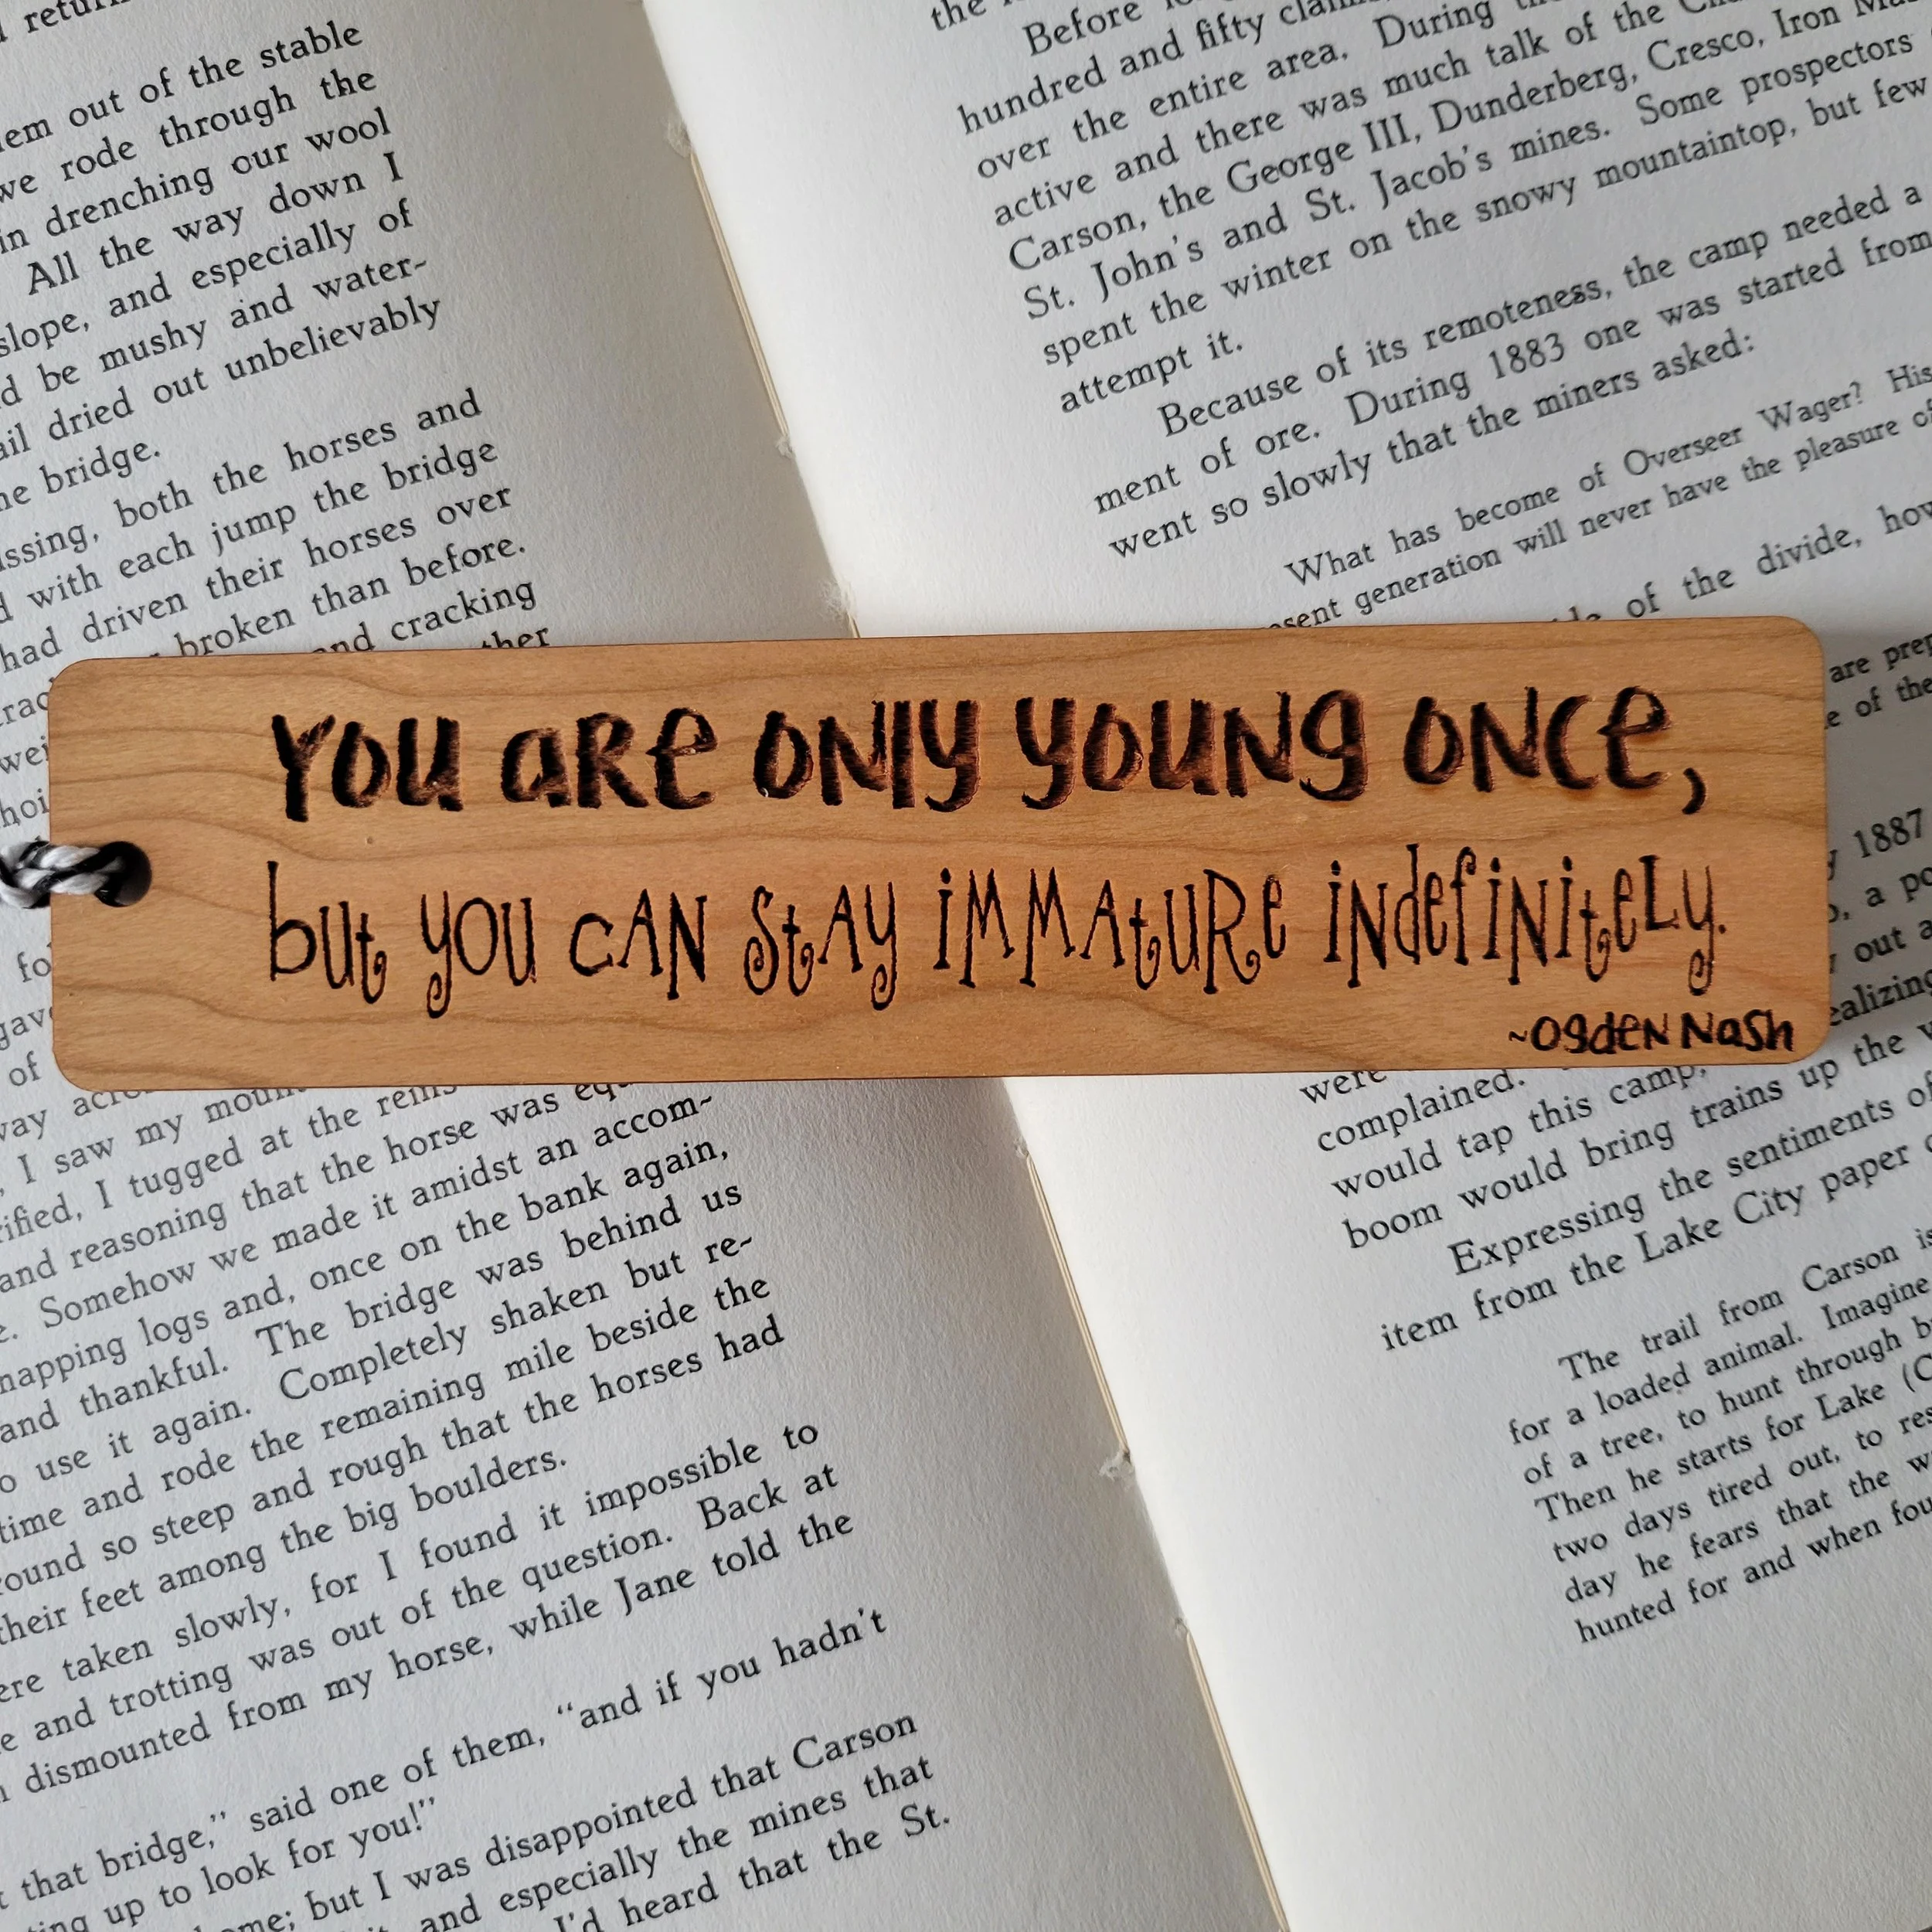 return
em out of the stable
we rode through the
in drenching our wool
All the way down I
slope, and especially of
d be mushy and water-
ail dried out unbelievably
he bridge.
ssing, both the horses and
d with each jump the bridge
had driven their horses over
broken than before.
and cracking
ther
the
Before
hundred and fifty
over the entire area. During
active and there was much talk of the
Carson, the George III, Dunderberg, Cresco, Iron
St. John's and St. Jacob's mines. Some prospectors
spent the winter on the snowy mountaintop, but few
attempt it.
Because of its remoteness, the camp needed a
ment of ore. During 1883 one was started from
went so slowly that the miners asked:
What has become of Overseer Wager? His
sent generation will never have the pleasure of
of the divide, how
are prep
e of the
1887
a po
out a
ealizing
YOU ARE ONLY YOUNG ONCE,
but you can stay immature indefinitely.
~Ogden Nash
of
way
, I saw my
rified, I tugged at the reins
and reasoning that the horse was
e. Somehow we made it amidst an accom-
napping logs and, once on the bank again,
and thankful. The bridge was behind us
o use it again. Completely shaken but re-
time and rode the remaining mile beside the
ound so steep and rough that the horses had
their feet among the big boulders.
ere taken slowly, for I found it impossible to
e and trotting was out of the question. Back at
dismounted from my horse, while Jane told the
that bridge," said one of them, "and if you hadn't
ting up to look for you!"
ome; but I was disappointed that Carson
and especially the mines that
I'd heard that the St.
were
complained.
would tap this camp,
boom would bring trains up the
Expressing the sentiments of
item from the Lake City paper
The trail from Carson is
for a loaded animal. Imagine
of a tree, to hunt through
Then he starts for Lake (C
two days tired out, to res
day he fears that the w
hunted for and when fou